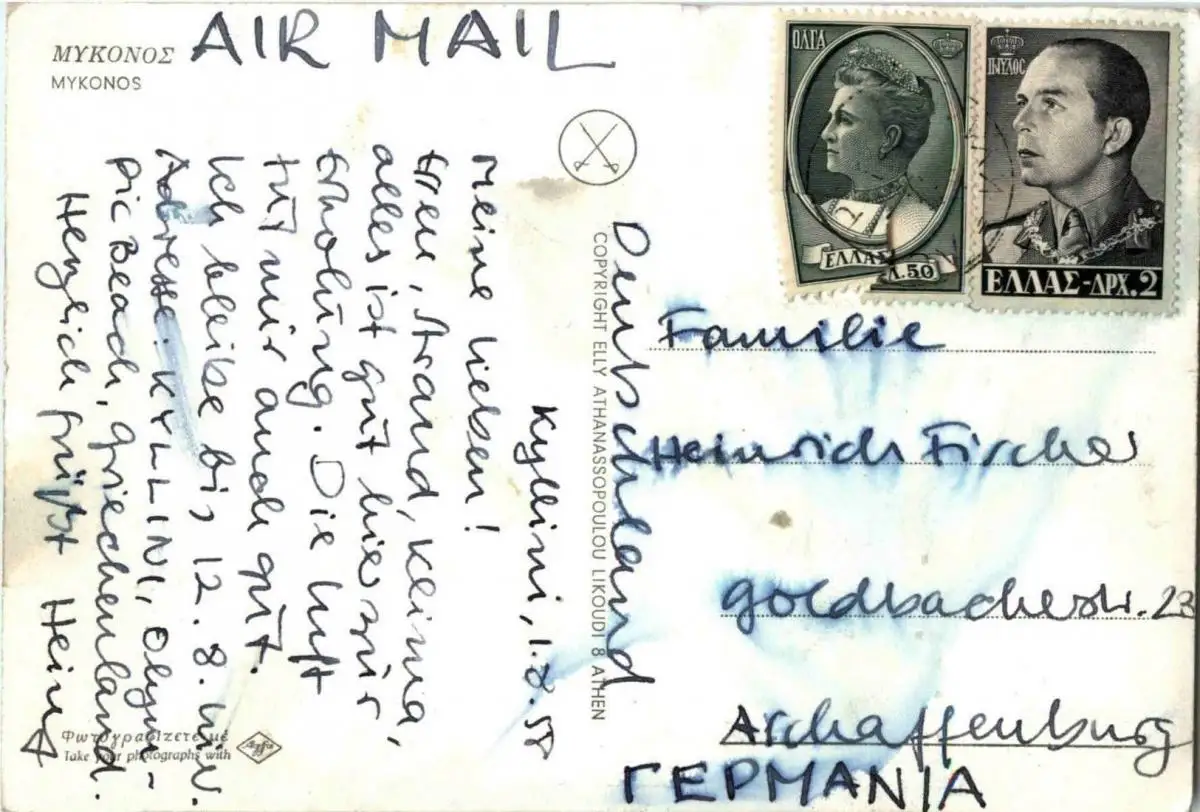 ΜΥΚΟΝΟΣ
MYKONOS
AIR MAIL
ΟΛΓΑ
ΕΛΛΑΣ
Λ.50
ΠΑΥΛΟΣ
ΕΛΛΑΣ-ΔΡΧ.2
Kyllini, 1.8.58
Meine Lieben!
Meer, Strand, Klima,
alles ist gut hier zur
Erholung. Die Luft
tut mir auch gut.
Ich bleibe bis 12.8. hier.
Adresse: KYLLINI, Olym-
pic Beach, Griechenland.
Herzlich grüßt Heinz
COPYRIGHT ELLY ATHANASSOPOULOU LIKOUDI 8 ATHEN
Deutschland
Familie
Heinrich Fischer
Goldbacherstr. 23
Aschaffenburg
ΓΕΡΜΑΝΙΑ
Φωτογραφίζετε με
Take your photographs with
Agfa